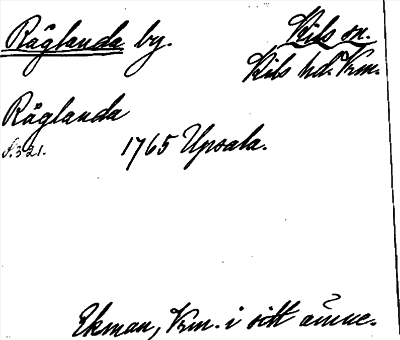 Räglanda by.
Kils sn.
Kils hd. Vrm.
Räglanda
S. 321.
1765 Upsala.
Ekman, Vrm. i sitt ämne.